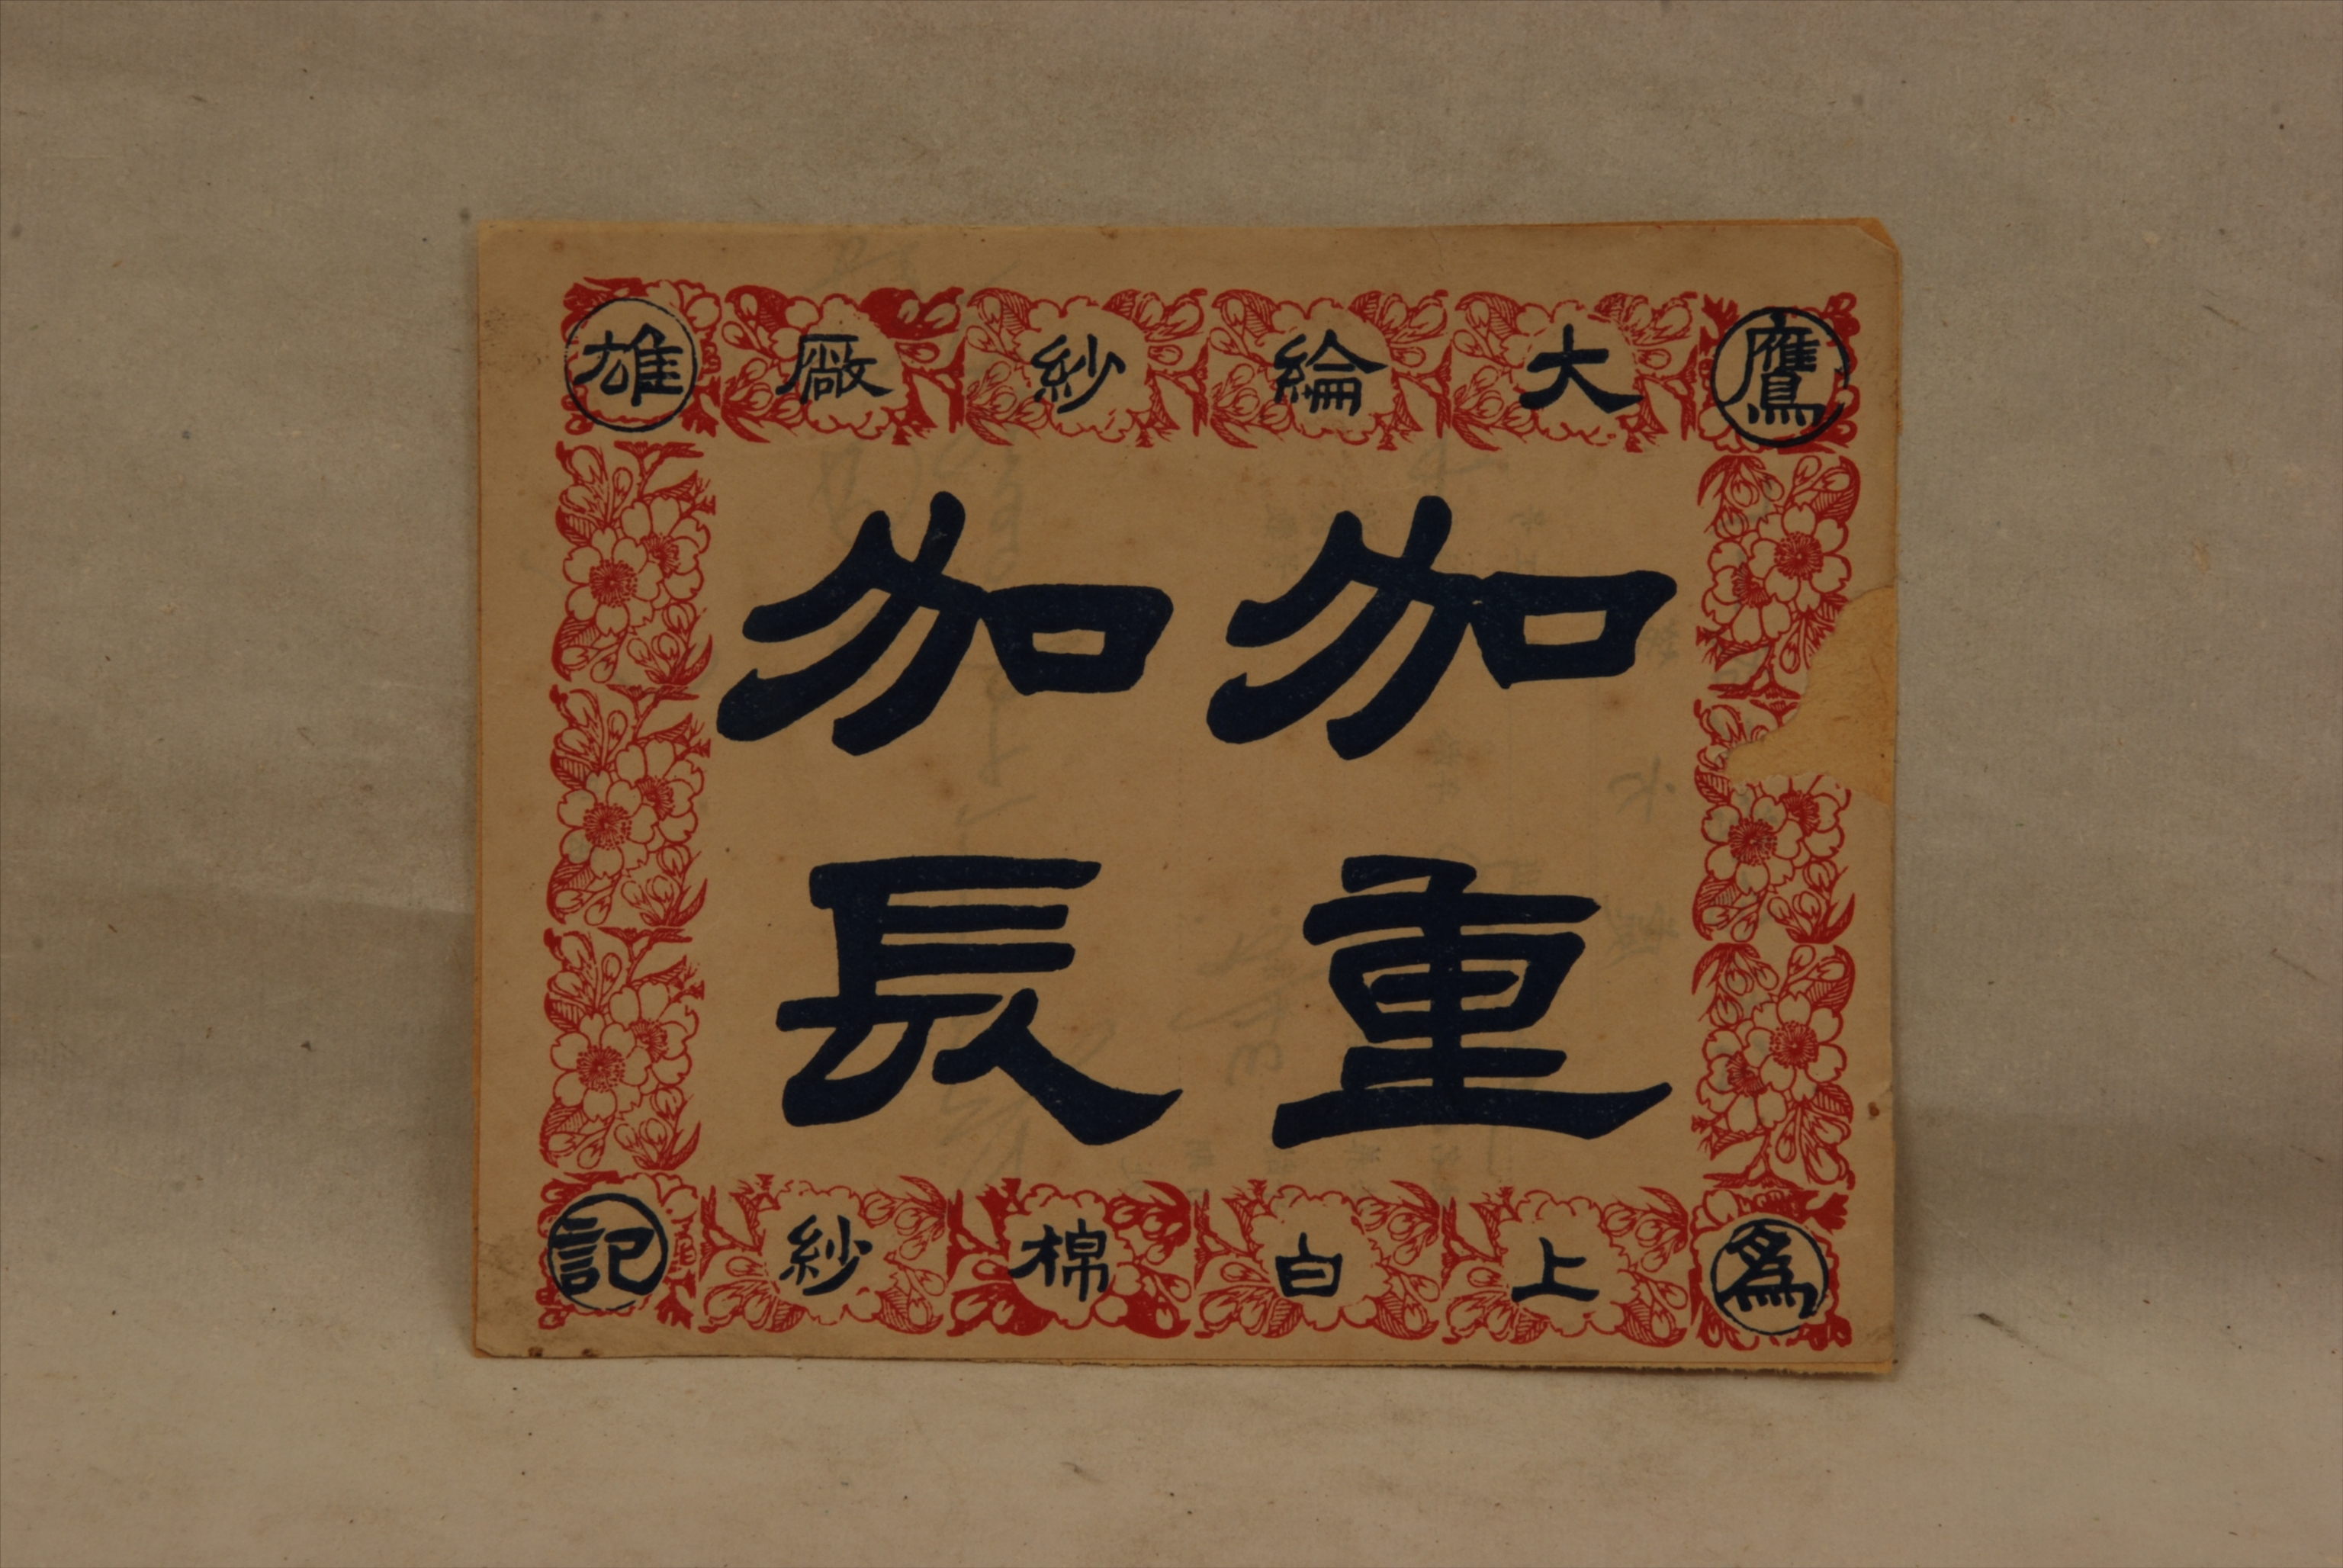 鷹雄為記
大綸紗廠
加重
加長
上白棉紗